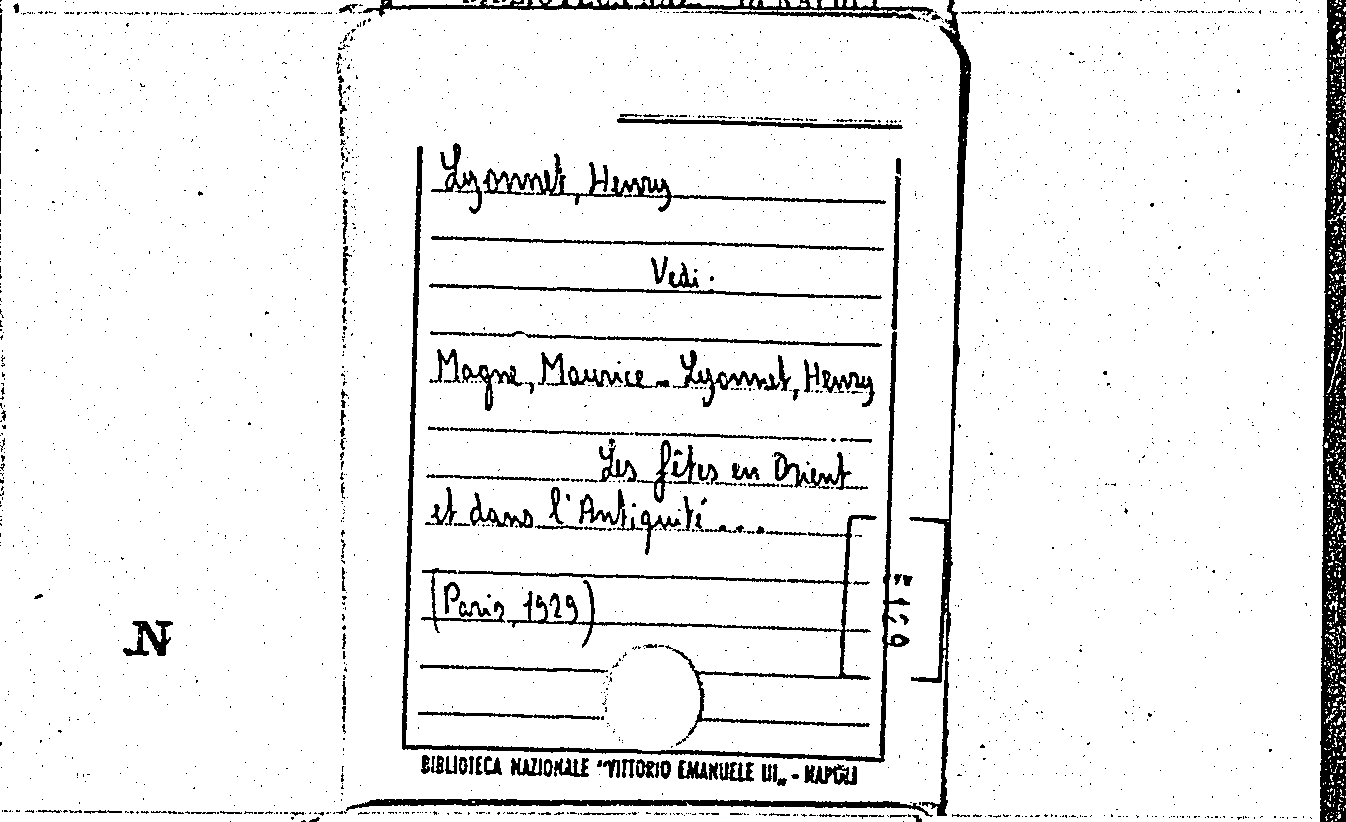 Lyonnet, Henry
Vedi:
Magne, Maurice - Lyonnet, Henry
Les fêtes en Orient
et dans l'Antiquité...
(Paris, 1929)
N
BIBLIOTECA NAZIONALE "VITTORIO EMANUELE III„ - NAPOLI